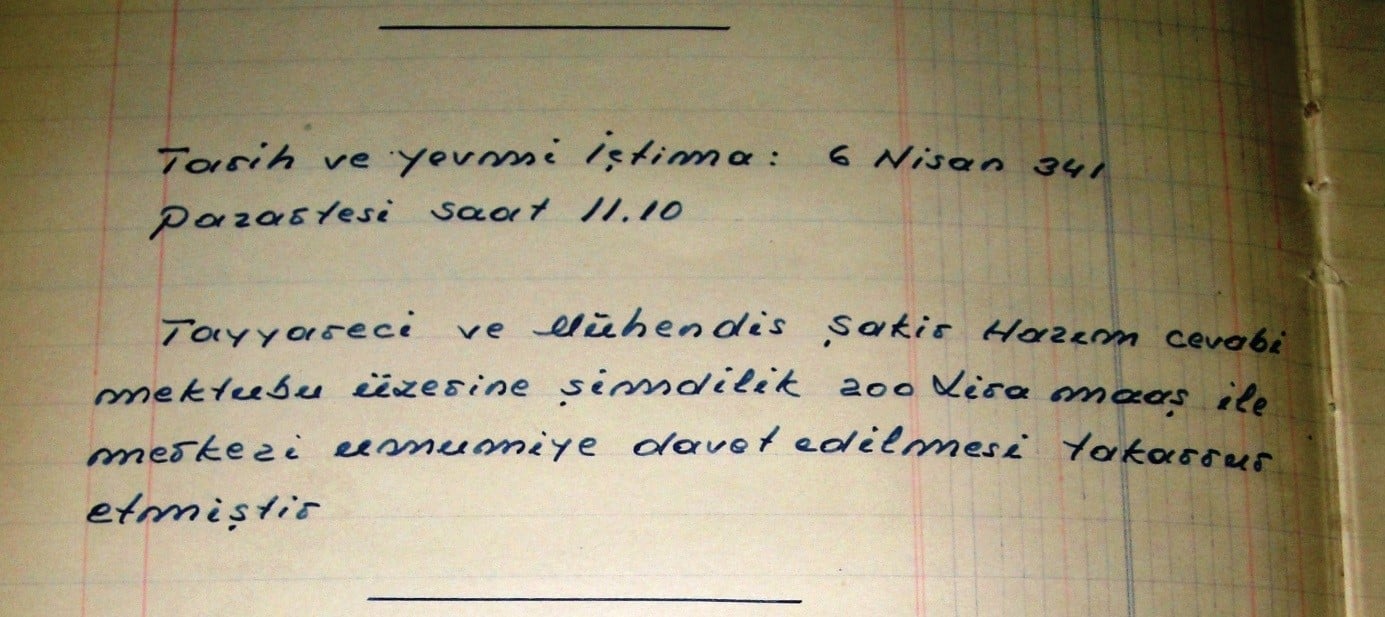 Tarih ve yevmi içtima: 6 Nisan 341
Pazartesi saat 11.10
Tayyareci ve Mühendis Şakir Hazım cevabi
mektubu üzerine şimdilik 200 Lira maaş ile
merkezi umumiye davet edilmesi takarrur
etmiştir